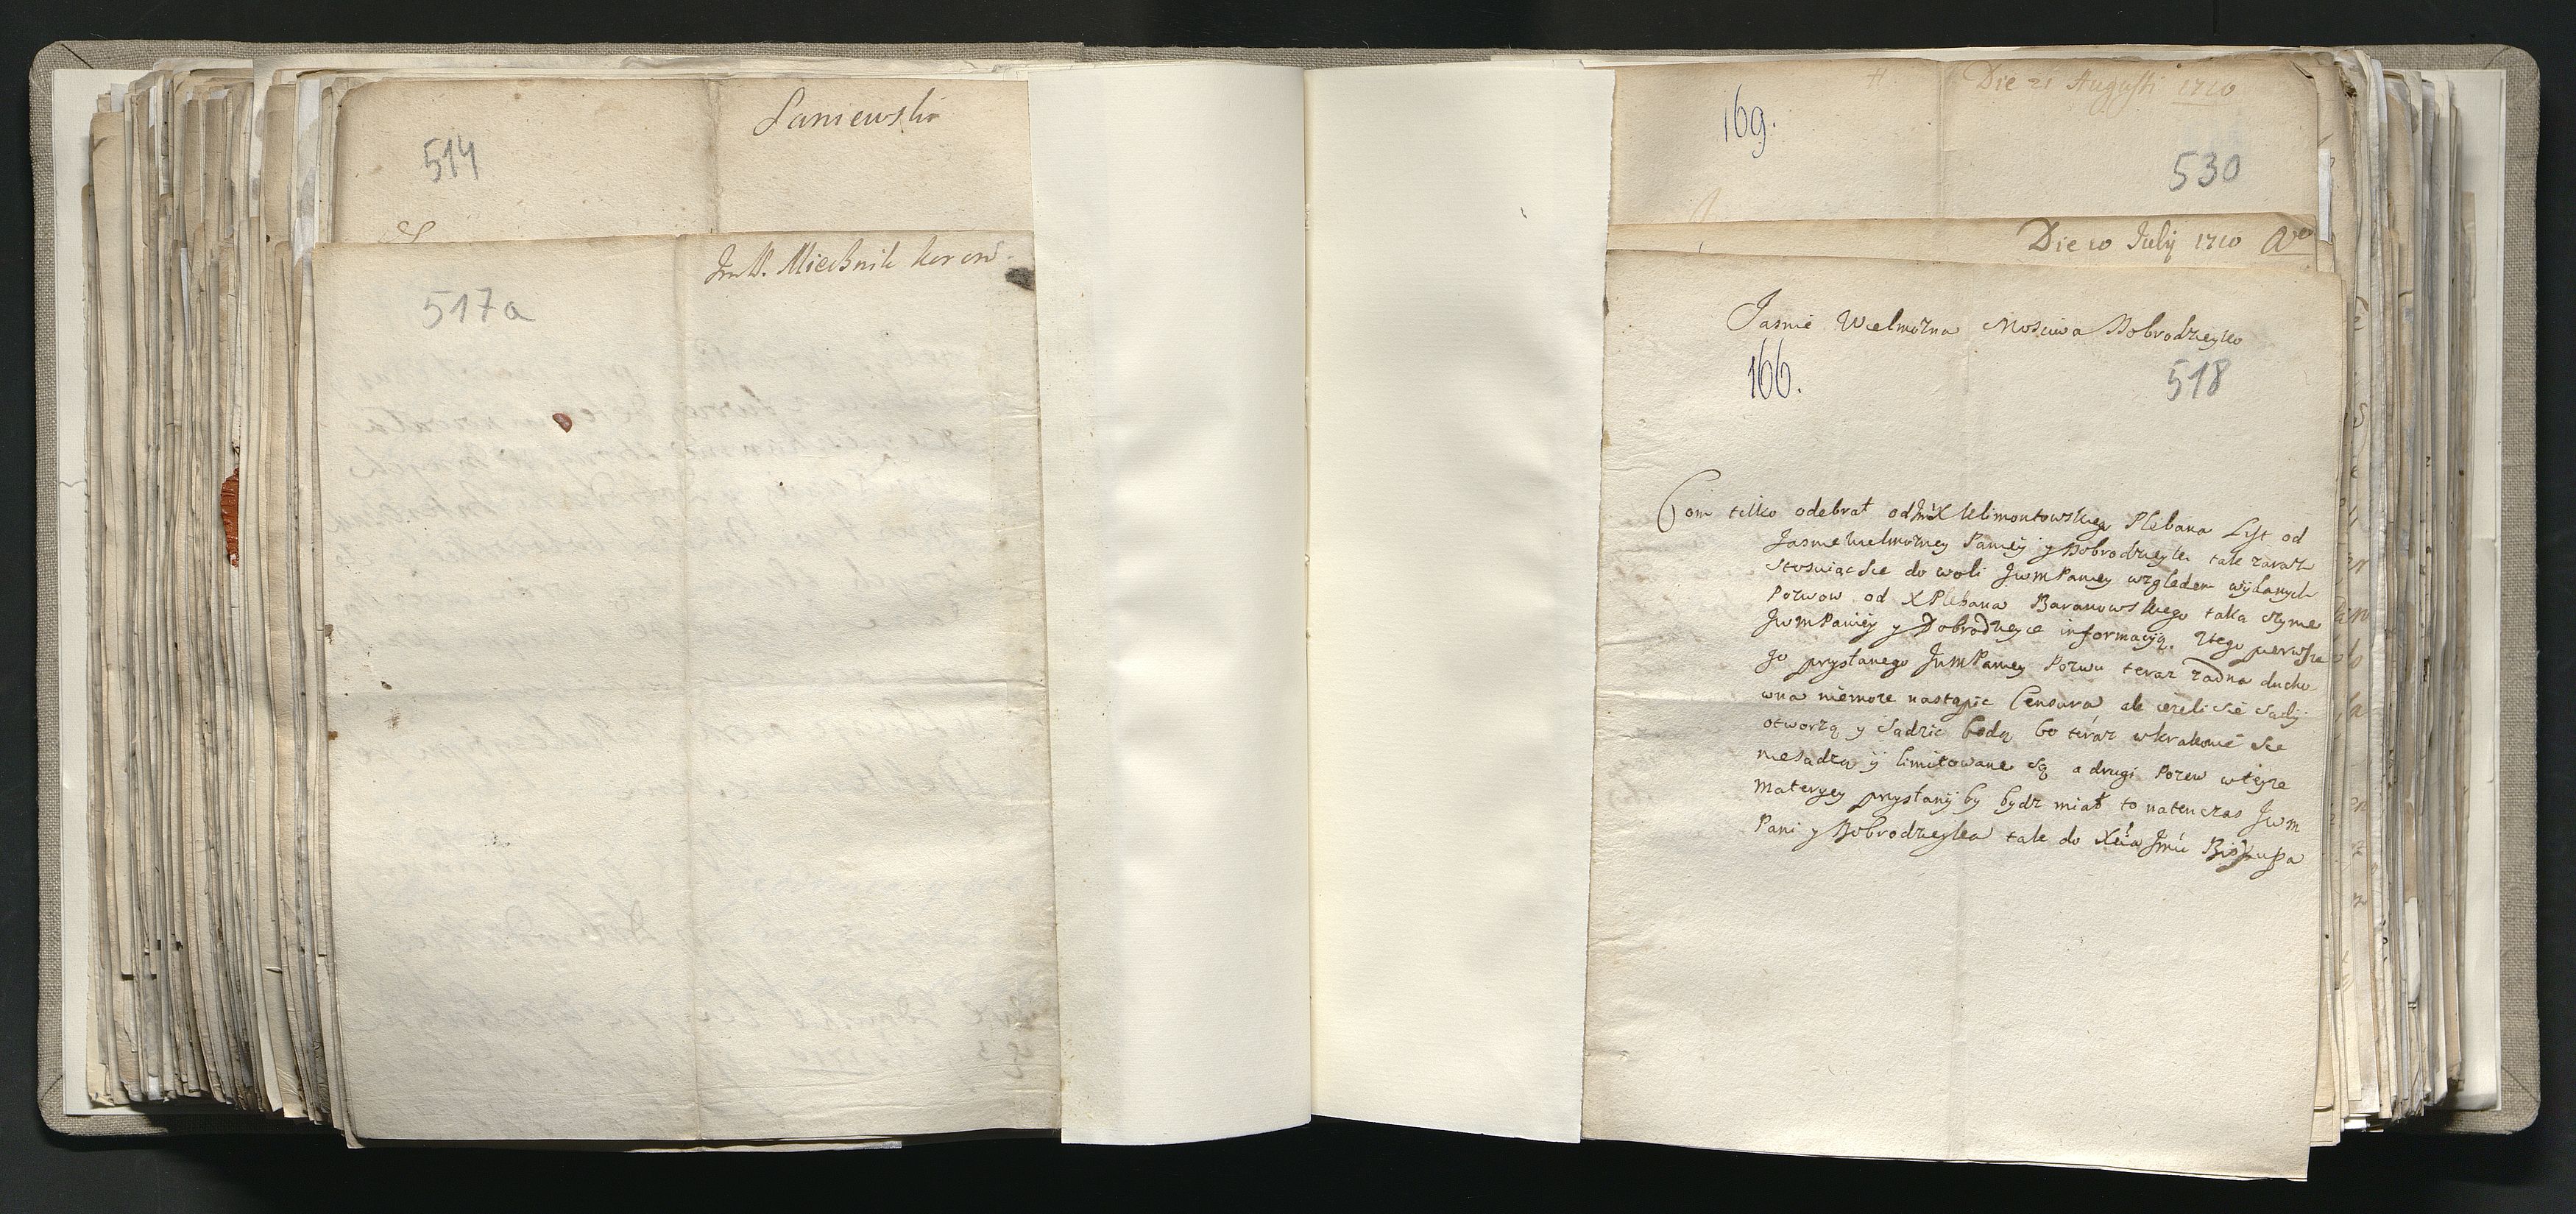 Laniewski
514
Im P. Miecznik Koron.
517a
Die 21 Augusti 1710
169.
530
Die 10 July 1710
Jasnie Wielmożna Mościwa Dobrodzieyko
166.
518
Com tilko odebrał od ImX Klimontowskieg Plebana List od
Jasnie Wielmozney Paniey y Dobrodzieyki tak zaraz
stosuiąc sie do woli JwmPaniey względem wydanych
Pozwow od XPlebana Baranowskiego taka czynie
JwmPaniey y Dobrodzieyce informacyją. Ztego pierwsze
go przysłanego JwmPaniey Pozwu teraz żadna ducho
wna niemoze nastąpic Censura ale iezeli sie sady
otworzą y sądzic bedą bo teraz wkrakowie sie
niesądzą y limitowane są a drugi Pozew wteyze
materyey przysłany by bydz miał to natenczas Jwm
Pani y Dobrodzieyka tak do Xcia Jmci Biskupa